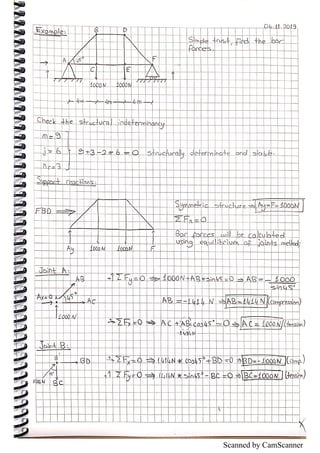 04.11.2019
Example:
Simple truss, find the bar
forces.
B D
A 45° F
C E
1000N 1000N
4m 4m 4m
Check the structural indeterminancy
m=9
j=6 9+3-2*6=0 structurally determinate and stable.
r=3
Support reactions:
FBD ⇒
Symmetric structure ⇒ Ay=F=1000N
ΣFx=0
Bar forces will be calculated
using equilibrium of joints method
Ay 1000N 1000N F
Joint A:
AB
Ax=0 45° AC
1000N
+↑ΣFy=0 ⇒ 1000N+AB*sin45=0 ⇒ AB=-1000/sin45
AB=-1414N ⇒ AB=1414N (compression)
+→ΣFx=0 ⇒ AC+ABcos45°=0 ⇒ AC=1000N (tension)
Joint B:
B BD
1414N BC
+→ΣFx=0 ⇒ 1414N*cos45°+BD=0 ⇒ BD=-1000N (comp.)
+↑ΣFy=0 ⇒ 1414N*sin45°-BC=0 ⇒ BC=1000N (tension)
Scanned by CamScanner